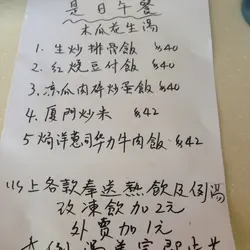 是日午餐
木瓜花生湯
1. 生炒排骨飯 $40
2. 紅燒豆付飯 $40
3. 凉瓜肉碎炒蛋飯 $40
4. 厦門炒米 $42
5 焗洋蔥司华力牛肉飯 $42
以上各款奉送熱飲及例湯
改凍飲加2元
外賣加1元